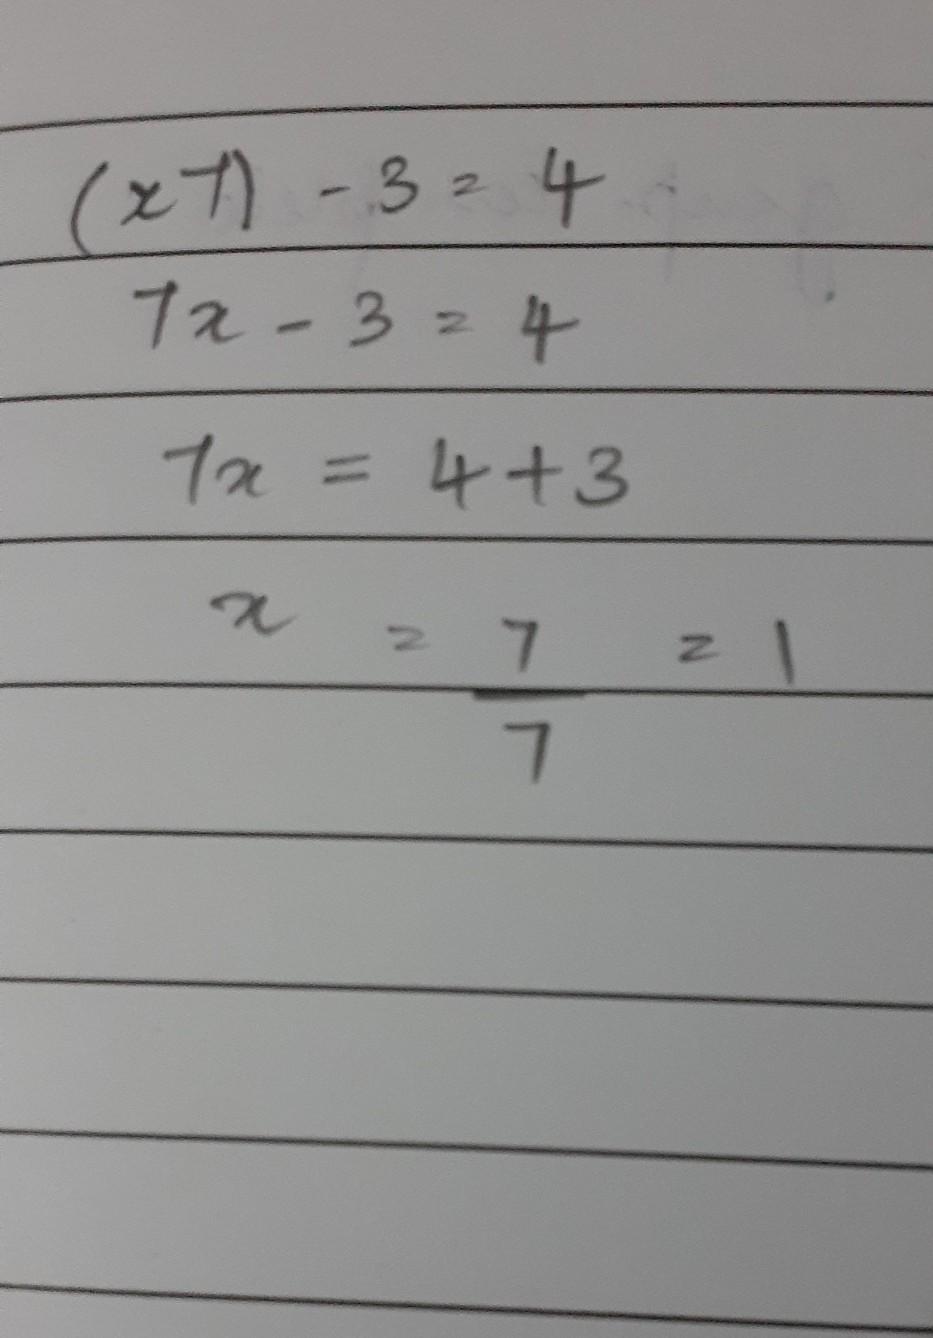 (x7) - 3 = 4
7x - 3 = 4
7x = 4 + 3
x = 7/7 = 1